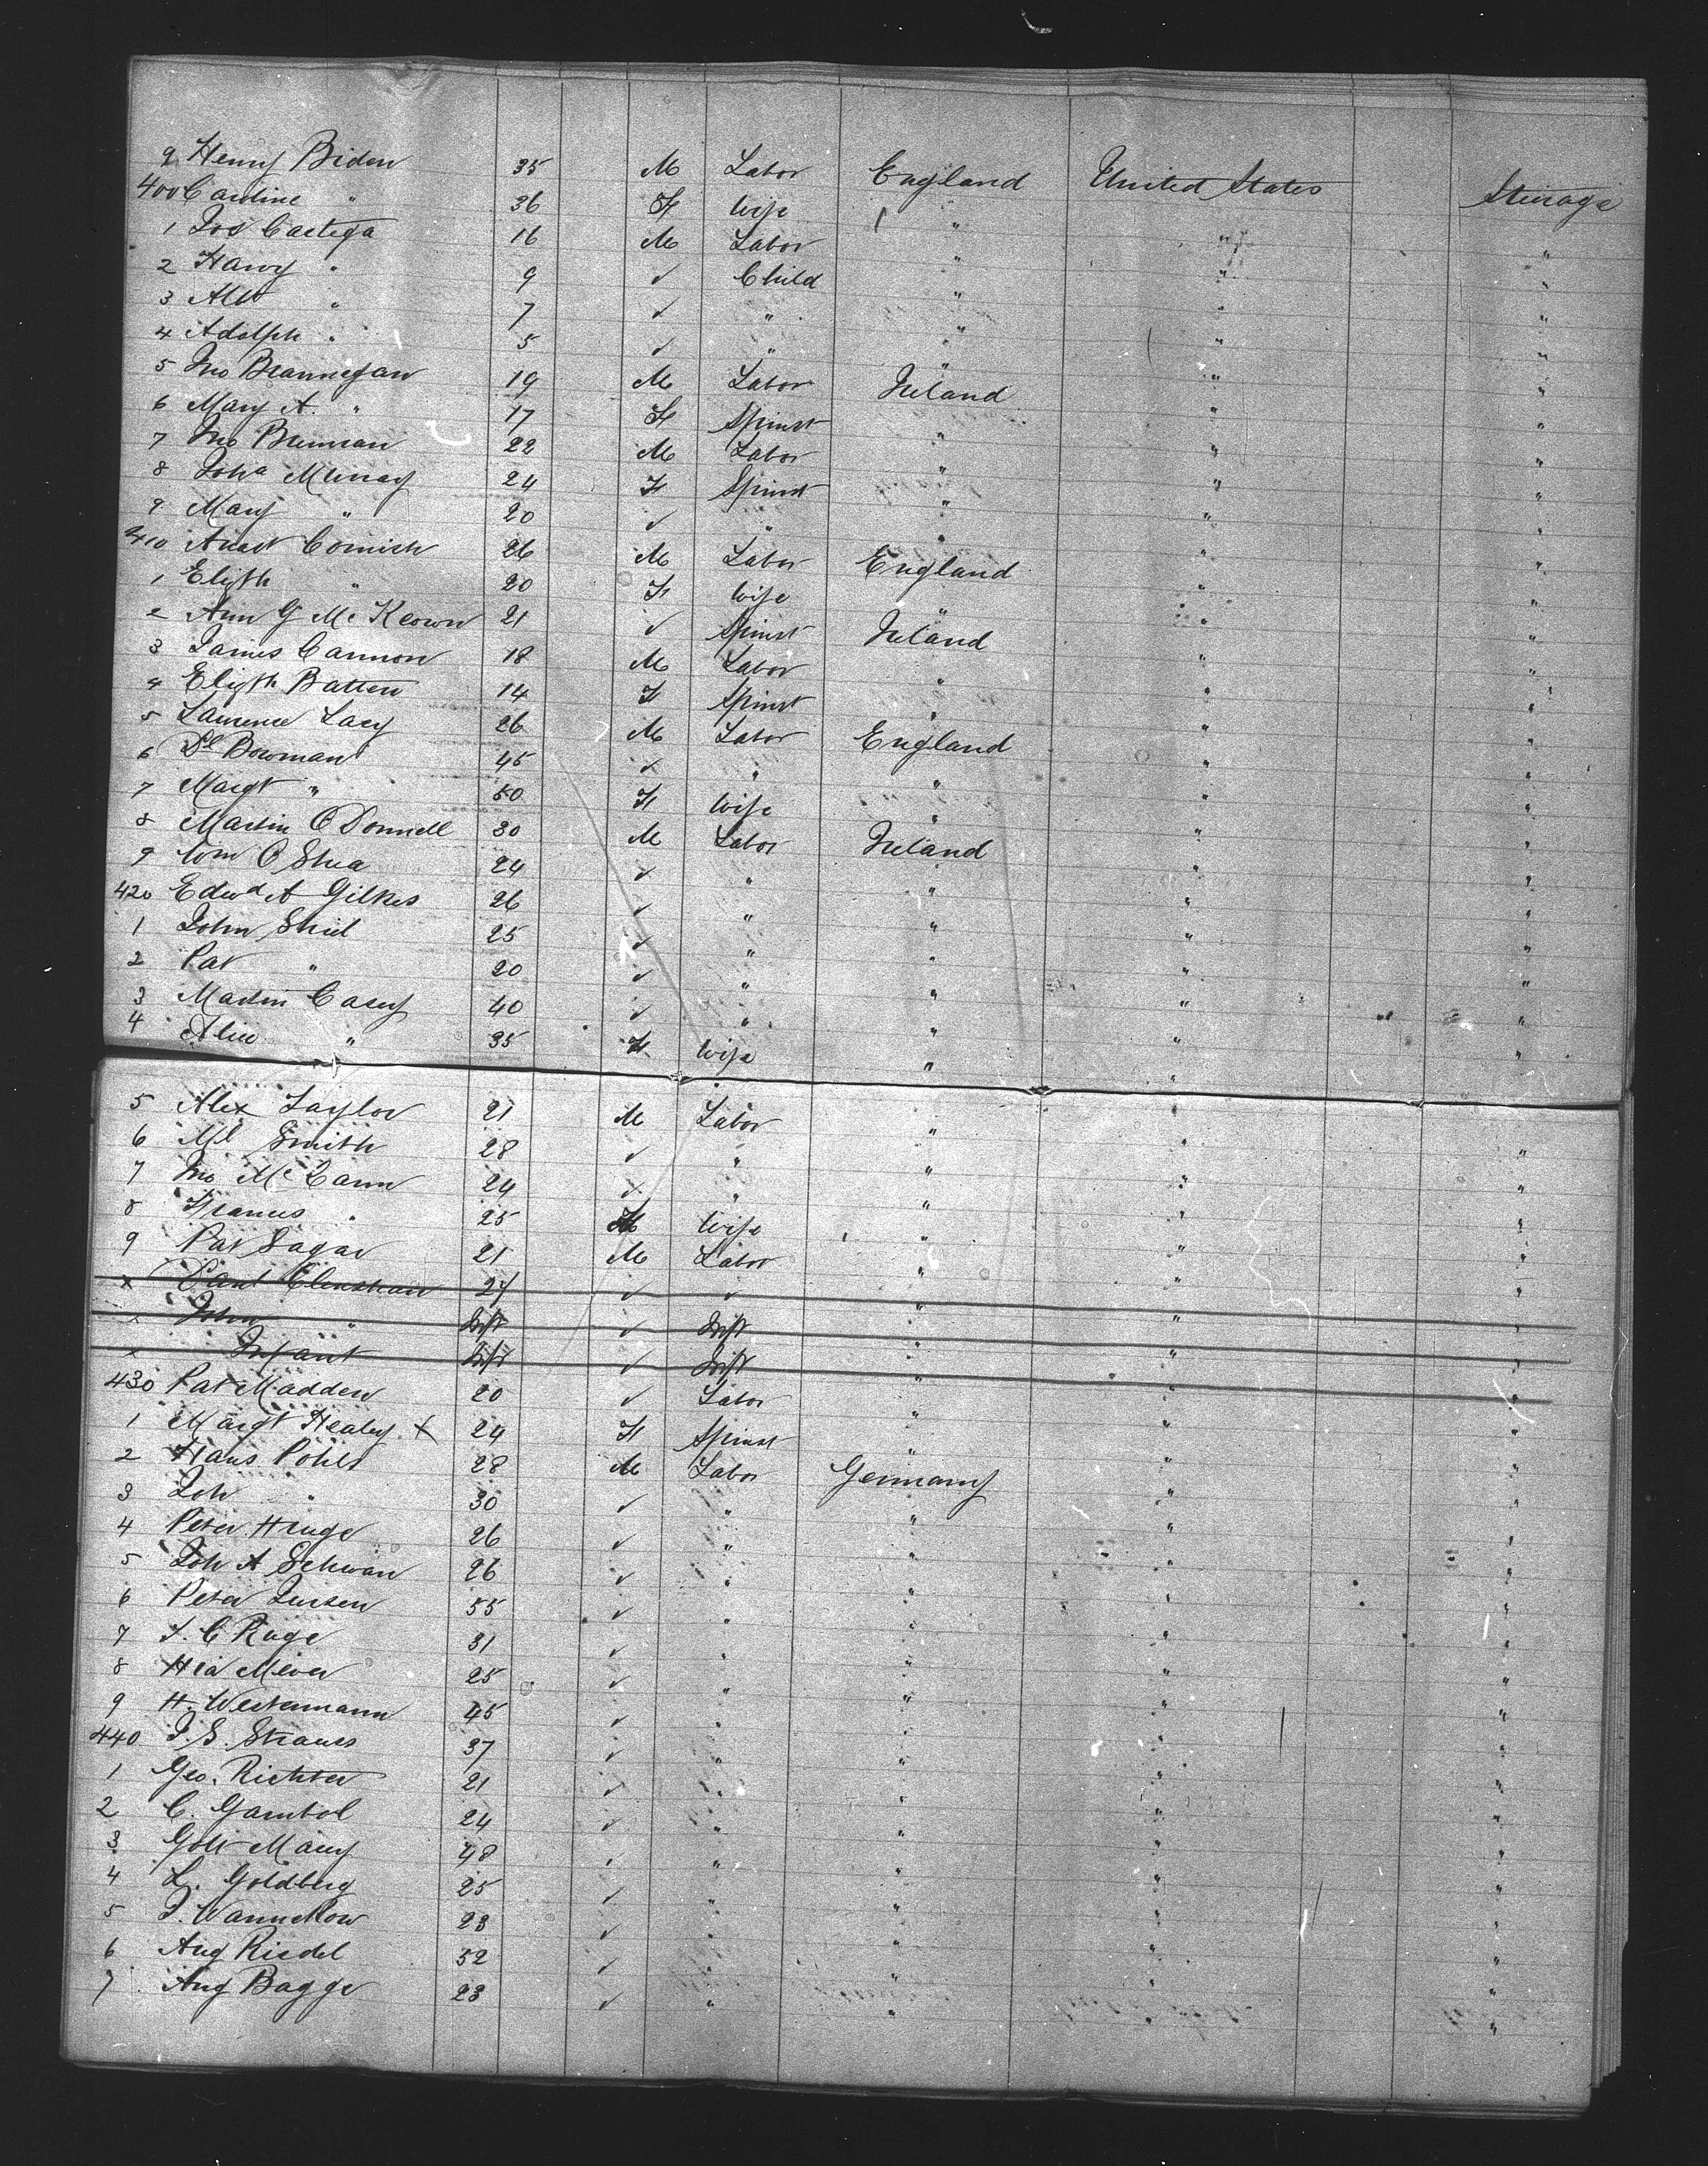 9 Henry Biden 35 M Labor England United States Steerage
400 Caroline " 36 F Wife " " "
1 Jos Castega 16 M Labor " " "
2 Harry " 9 ✓ Child " " "
3 Alb " 7 ✓ " " " "
4 Adolph " 5 ✓ " " " "
5 Jno Brannegan 19 M Labor Ireland " "
6 Mary A. " 17 F Spinst " " "
7 Jno Brennan 22 M Labor " " "
8 Joha Murray 24 F Spinst " " "
9 Mary " 20 ✓ " " " "
410 Cornish 26 M Labor England " "
1 Elizth " 20 F Wife " " "
2 Ann G McKeown 21 ✓ Spinst Ireland " "
3 James Cannon 18 M Labor " " "
4 Elizth Batten 14 F Spinst " " "
5 Laurence Lacy 26 M Labor England " "
6 Dl Bowman 45 ✓ " " " "
7 Margt " 50 F Wife " " "
8 Martin O Donnell 30 M Labor Ireland " "
9 Wm O Shea 24 ✓ " " " "
420 Edwd A Gilkes 26 ✓ " " " "
1 John Shiel 25 ✓ " " " "
2 Pat " 20 ✓ " " " "
3 Martin Casey 40 ✓ " " " "
4 Alice " 35 F Wife " " "
5 Alex Taylor 21 M Labor " " "
6 Ml Smith 28 ✓ " " " "
7 Jno McCann 24 ✓ " " " "
8 Frances " 25 F Wife " " "
9 Pat Sagar 21 M Labor " " "
x 27 ✓ ✓ " " "
x John " Inft ✓ Inft " " "
x Infant Inft ✓ Inft " " "
430 Pat Madden 20 ✓ Labor " " "
1 Margt Healey x 24 F Spinst " " "
2 Hans Pohls 28 M Labor Germany " "
3 Joh " 30 ✓ " " " "
4 Peter Huge 26 ✓ " " " "
5 Joh A Schwan 26 ✓ " " " "
6 Peter Jensen 55 ✓ " " " "
7 F. C Ruge 31 ✓ " " " "
8 Meier 25 ✓ " " " "
9 H. Westermann 45 ✓ " " " "
440 J. S. Strauss 37 ✓ " " " "
1 Geo. Richter 21 ✓ " " " "
2 C. Gambol 24 ✓ " " " "
3 Gott Maey 48 ✓ " " " "
4 L. Goldberg 25 ✓ " " " "
5 J. Wannekow 23 ✓ " " " "
6 Aug Riedel 32 ✓ " " " "
7 Aug Bagge 23 ✓ " " " "